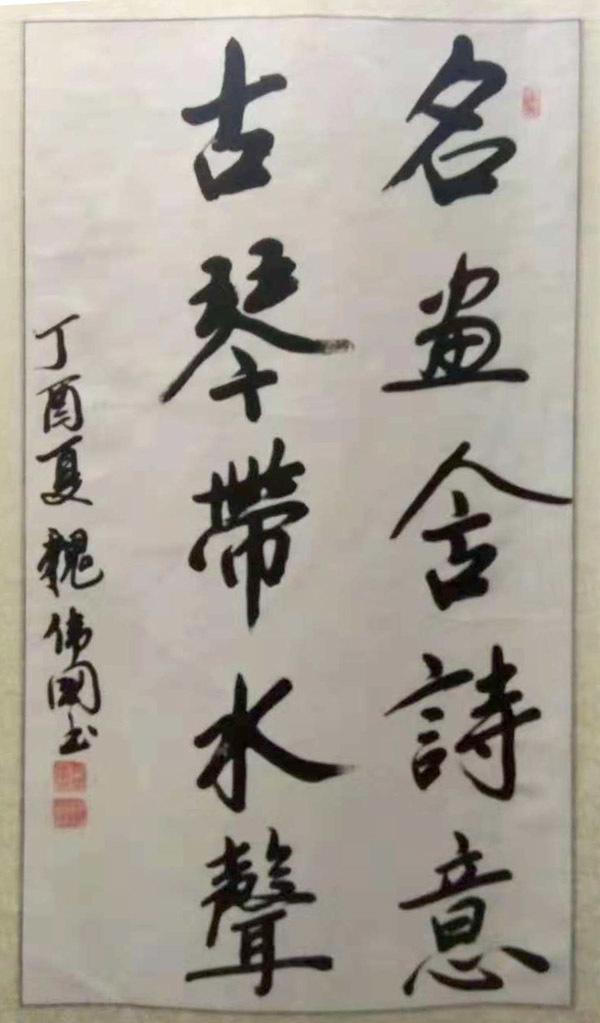 名畫含詩意
古琴帶水聲
丁酉夏 魏伟國书